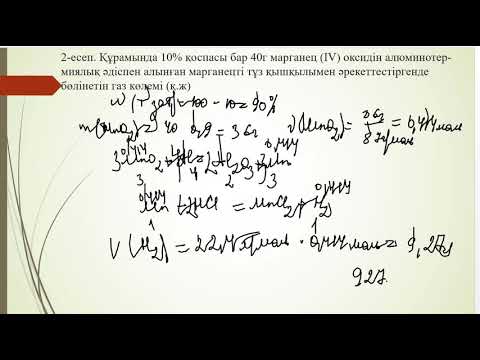 2-есеп. Құрамында 10% қоспасы бар 40г марганец (IV) оксидін алюминотер-
миялық әдіспен алынған марганецті тұз қышқылымен әрекеттестіргенде
бөлінетін газ көлемі (қ.ж)
= 100 - 10 = 90%
m(MnO2) = 40 · 0,9 = 36г ν(MnO2) = 36г = 0,414моль
87г/моль
0,414 0,414
3MnO2 + 4Al = 2Al2O3 + 3Mn
3 4 2 3
0,414 0,414
Mn + 2HCl = MnCl2 + H2
1 1
V(H2) = 22,4л/моль · 0,414моль = 9,27л
927.